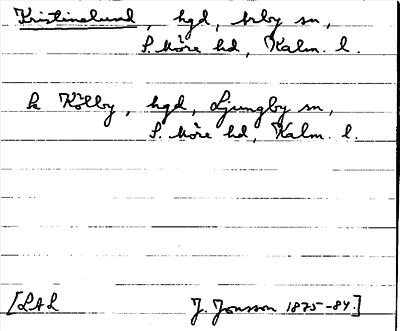 Kristinelund, hgd, Arby sn,
S. Möre hd, Kalm. l.
h Kölby, hgd, Ljungby sn,
S. Möre hd, Kalm. l.
[LAL J. Jonsson 1875-84.]